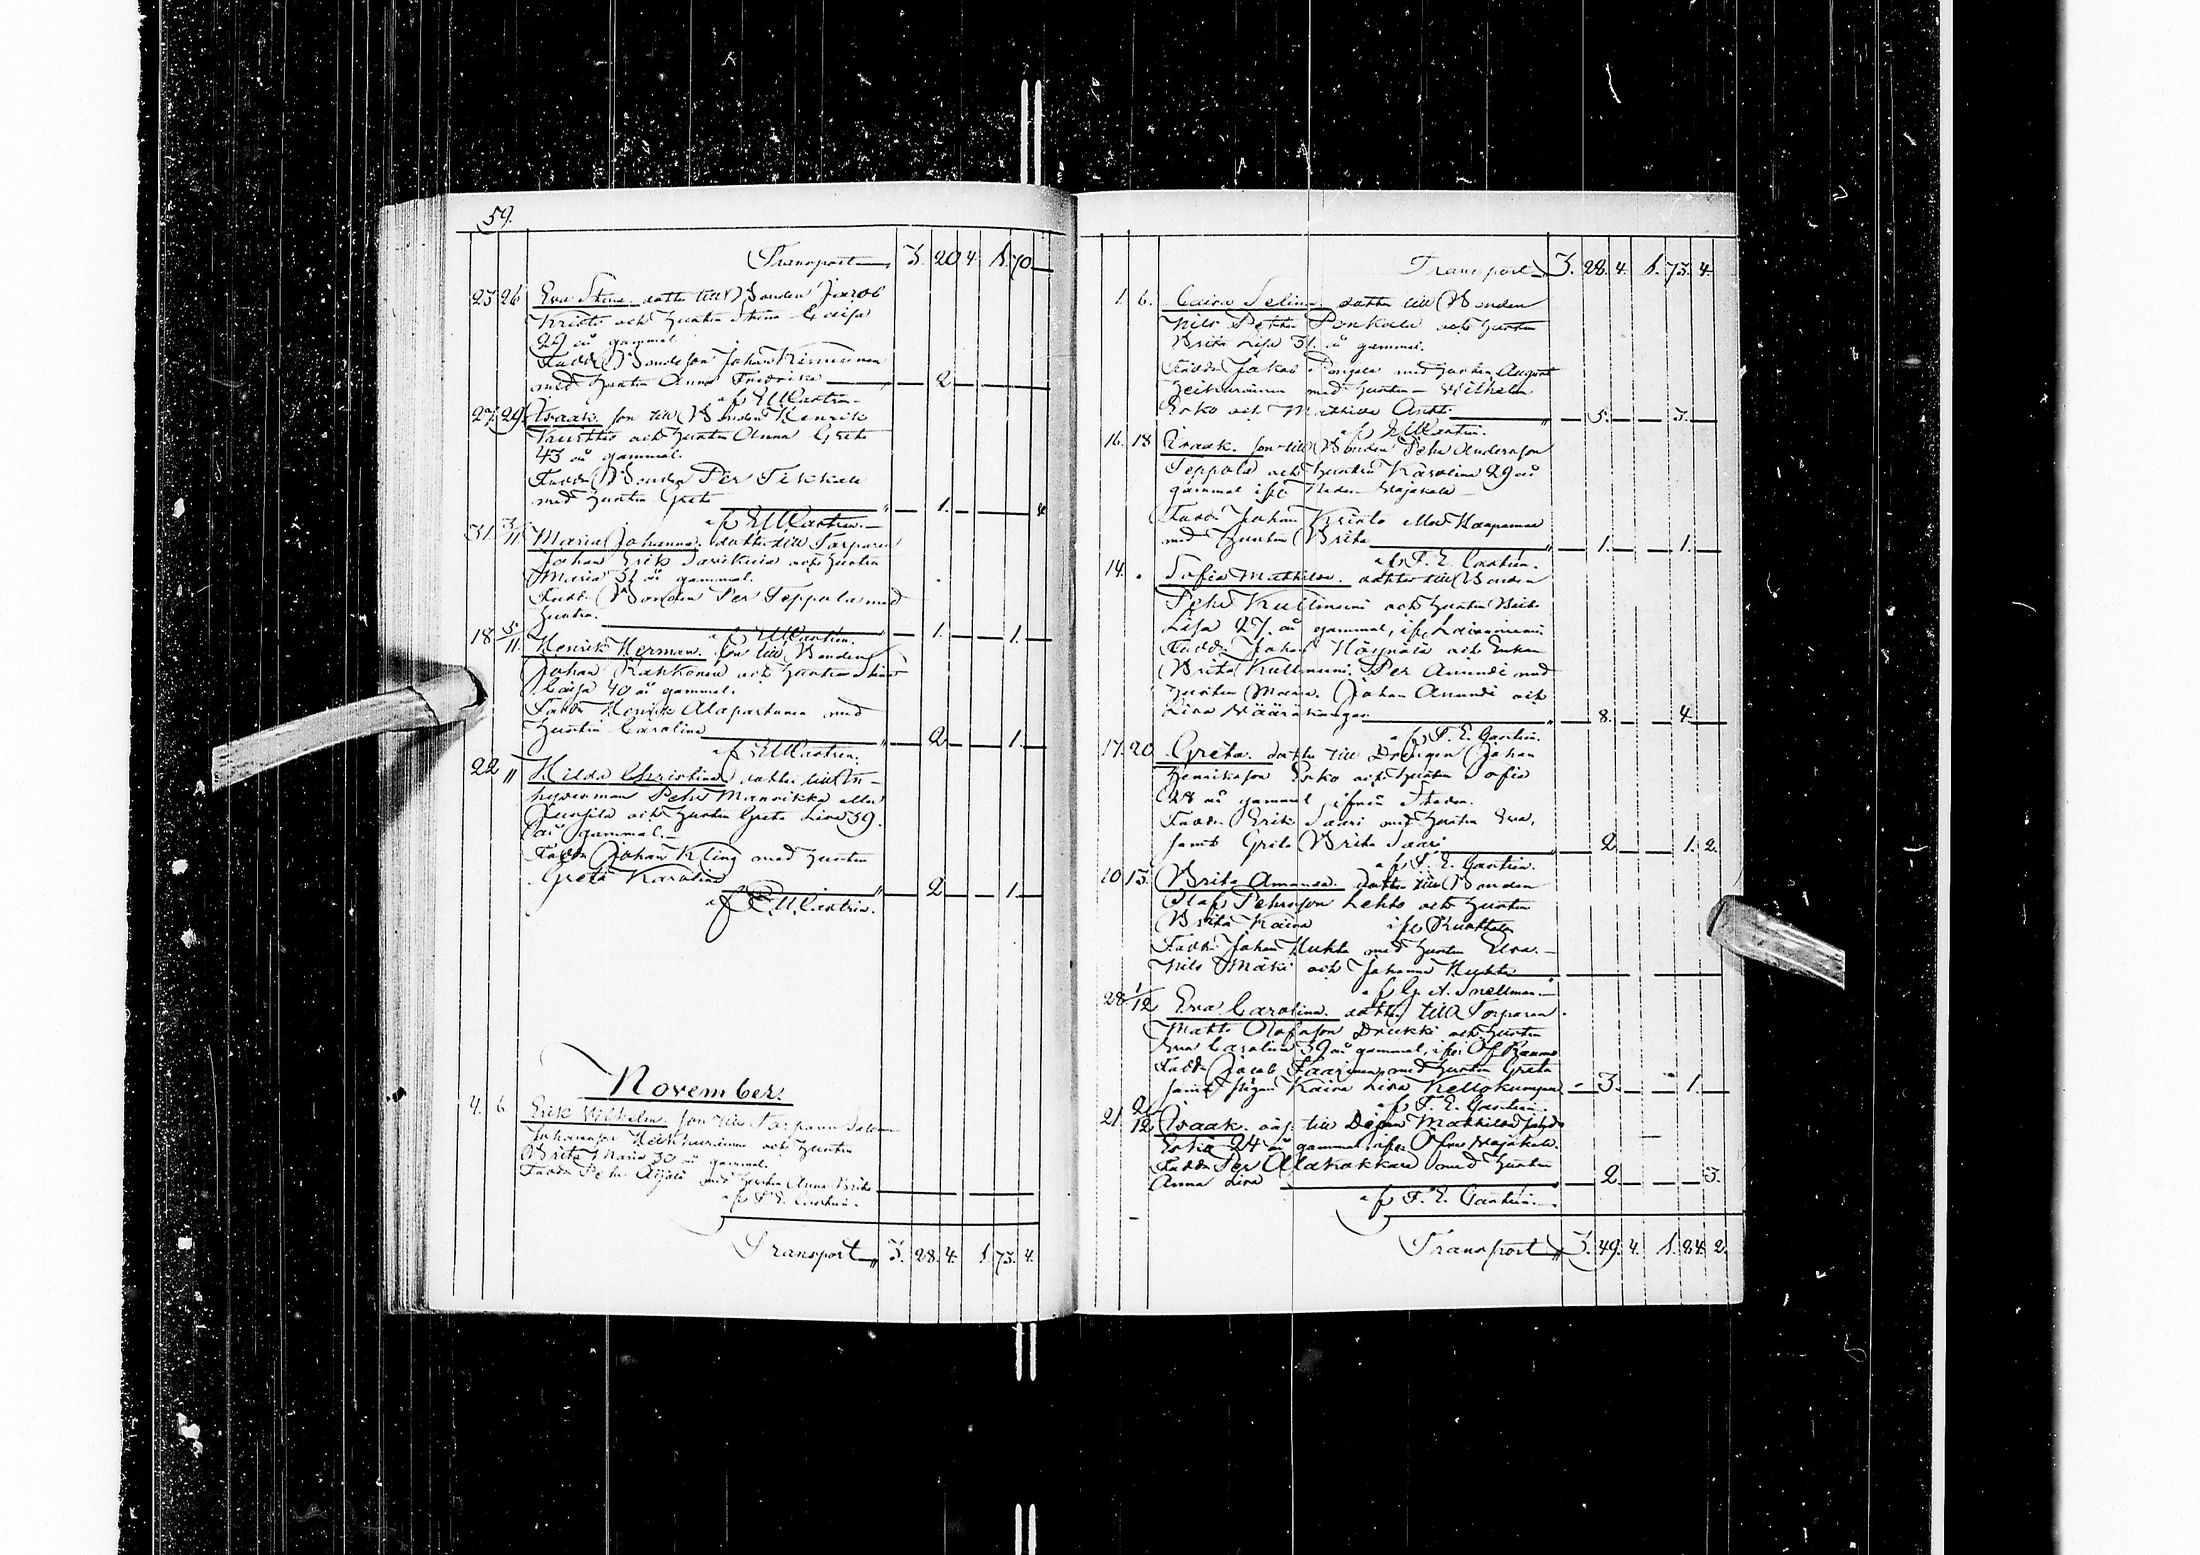 59.
Transport 3. 20 4. 1. 70
23 26 Eva Stina. dotter till Bonden Jacob
Kristo och hustru Stina Caisa
29 år gammal.
Fadd. Bondeson Johan Kinnunen
med hustru Anna Fredrika 2
af E M Castrén.
27. 29. Isaak. son till Bonden Henrik
och hustru Anna Greta
43 år gammal.
Fadd. Bonden Per Tikkala
med hustru Greta 1. 4
af E M Castrén.
31. 3/11 Maria Johanna. dotter till Torparen
Johan Erik och hustru
Maria 31 år gammal.
Fadd. Bonden Per Seppola med
hustru. 1. 1.
af E M Castrén.
18 5/11 Henrik Herman. son till Bonden
Johan Kahkonen och hustru Stina
Caisa 40 år gammal.
Fadd. Henrik Alapartanen med
hustru Carolina 2 1.
af E M Castrén.
22 " Hilda Christina dotter till In-
hysesman Pehr Mannikka eller
Junjila och hustru Greta Lisa 39.
år gammal.
Fadd. Johan Kling med hustru
Greta Karolina 2 1.
af E. M. Castrén.
November.
4. 6. Erik Wilhelm. son till Torparen
Johansson Heikkuranen och hustru
Brita Maria 30 år gammal.
Fadd. Pehr Äijälä med hustru Anna Brita
af F. E. Castrén.
Transport 3. 28. 4. 1. 73. 4.
Transport 3. 28. 4. 1. 73. 4.
1. 6. Caisa Selina. dotter till Bonden
Nils Petter Ponkala och hustru
Brita Lisa 31. år gammal.
Fadd. Jakob Pongala med hustru, August
Heikuranen med hustru Wilhelm
Erko och Mathilda Antti 5. 3.
af E M Castrén.
16. 18 Isaak. son till Bonden Pehr Andersson
Seppala och hustru Karolina 29 år
gammal ifr. Nedre Wojakala
Fadd. Johan Kristo eller Kaapamaa
med hustru Brita 1. 1.
af F. E. Castrén.
14. . Sofia Mathilda. dotter till Bonden
Pehr Kullinsini och hustru Brita
Lisa 27. år gammal, ifr.
Fadd. Johan och Enkan
Brita Per Anundi med
hustru Maria. Johan Anundi och
Lisa Wääräkangas 8. 4.
af F. E. Castrén.
17. 20. Greta. dotter till Drengen Johan
Henriksson Erko och hustru Sofia
28 år gammal, ifrån Staden.
Fadd. Erik Saari med hustru Eva,
samt Greta Brita Saari 2 1. 2.
af F. E. Castrén.
10 13. Brita Amanda. dotter till Bonden
Olaf Pehrsson Lehto och hustru
Brita Kaisa ifr. Ruottala
Fadd. Johan Huhta med hustru Elsa.
Nils Mäki och Johanna Huhta
af G. A. Snellman.
28 1/12 Eva Carolina. dotter till Torparen
Matts Olofsson Drukki och hustru
Eva Carolina 39 år gammal, ifr. Öf. Raumo
Fadd. Jacob Saarinen med hustru Greta
samt pigan Kaisa Lisa Kellokumpu 3. 1.
af F. E. Castrén.
21. 2/12 Isaak. oäg. till Pigan Mathilda
24 år gammal, ifr. Öfre Wojakala.
Fadd. Per Alakakkara med hustru
Anna Lisa 2. 3.
af F. E. Castrén.
Transport 3. 49. 4. 1. 84. 2.